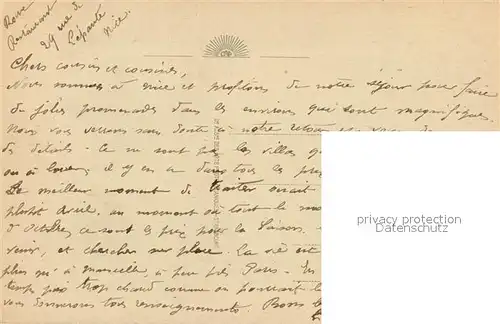 Restaurant
29 rue de
Lépante
Nice.
Chers cousins et cousines,
Nous sommes à nice et profitons de notre séjour pour faire
de jolies promenades dans les environs qui sont magnifiques.
Nous vous verrons sans doute à notre retour et
des détails. Ce ne sont pas les villas
ou à louer; il y en a dans tous les prix
Le meilleur moment de traiter serait
plutôt Avril, au moment où tout le
d'Octobre, ce sont les prix pour la saison.
venir, et chercher sur place. La vie est
plus qu'à marseille, à peu près Paris. En
temps pas trop chaud comme on pourrait le
vous donnerons tous renseignements. Bons
privacy protection
www.ansichtskarten-center.de